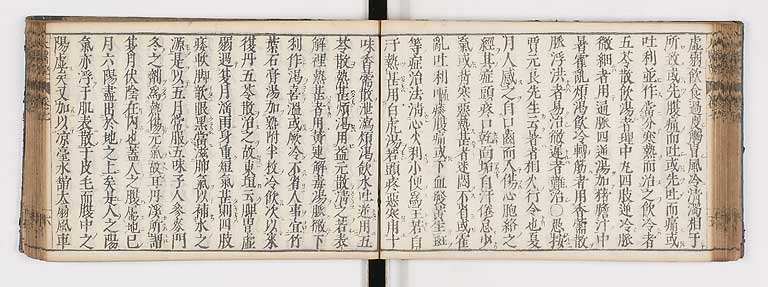 虛弱飲食過度觸冒風冷清濁相干
所致或先腹痛而吐或先吐而痛或
吐利並作當分寒熱而治之飲冷者
五苓散飲湯者理中丸四肢逆冷脈
微細者用通脈四逆湯加豬膽汁中
暑霍亂煩渴飲冷轉筋者用香薷散
脈浮洪者易治微遲者難治○愚按
賈元良先生云暑者相火行令也夏
月人感之自口齒而入傷心胞絡之
經其症頭疼口乾面垢自汗倦怠少
氣或背寒惡熱甚者迷悶不省或霍
亂吐利嘔腹痛或下血發黃生斑
等症治法清心火利小便為主若自
汗熱甚用白虎湯若頭疼惡寒用十
味香薷飲泄瀉煩渴飲水吐逆用五
苓散熱甚煩渴用益元散清之若表
解裡熱甚者用黃連解毒湯脈微下
利作渴喜溫或厥冷不省人事宜竹
葉石膏湯加熟附半枚冷飲次以來
復丹五苓散治之故東垣云脾胃虛
弱遇夏月淫雨身重短氣甚則四肢
痿軟脚欹眼黑當滋肺氣以補水之
源是以五月常服五味子人參麥門
冬之劑為熱傷元氣故耳丹溪所謂
夏月伏陰在內也蓋人之腹屬地巳
月六陽盡出於地之上矣是人之陽
氣亦浮于肌表散于皮毛而腹中之
陽虛矣又加以涼臺水館大扇風車